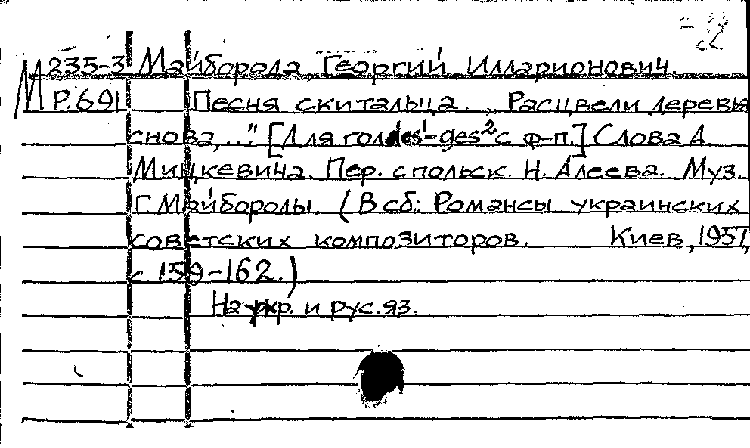 -2
М 235-3 Майборода Георгий Илларионович.
Р.691 Песня скитальца. „Расцвели деревья
снова,..." [Для гол. des¹-ges² с ф-п.] Слова А.
Мицкевича. Пер. с польск. Н. Алеева. Муз.
Г. Майбороды. (В сб: Романсы украинских
советских композиторов. Киев, 1957,
с 159-162.)
На укр. и рус. яз.